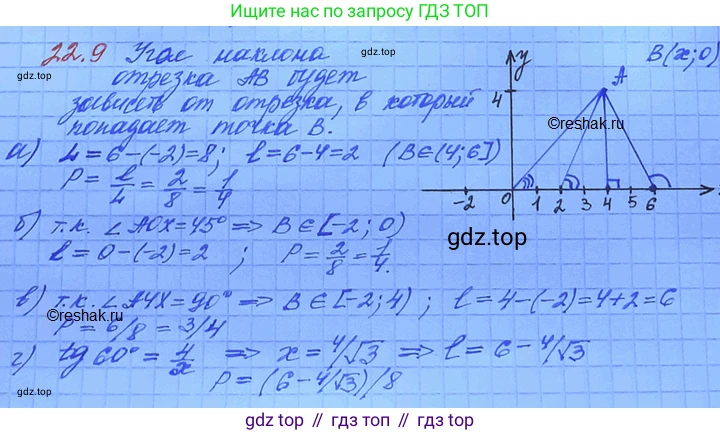 Ищите нас по запросу ГДЗ ТОП
22.9 Угол наклона
отрезка AB будет
зависеть от отрезка, в который
попадает точка B.
а) L = 6 - (-2) = 8; l = 6 - 4 = 2 (B ∈ (4; 6])
P = l/L = 2/8 = 1/4
б) т.к. ∠AOX = 45° => B ∈ [-2; 0)
l = 0 - (-2) = 2 ; P = 2/8 = 1/4.
в) т.к. ∠A4X = 90° => B ∈ [-2; 4) ; l = 4 - (-2) = 4 + 2 = 6
P = 6/8 = 3/4
г) tg 60° = 4/x => x = 4/√3 => l = 6 - 4/√3
P = (6 - 4/√3)/8
y
B(x; 0)
A
4
-2 0 1 2 3 4 5 6
©reshak.ru
gdz.top
©reshak.ru
gdz top // гдз топ // gdz.top